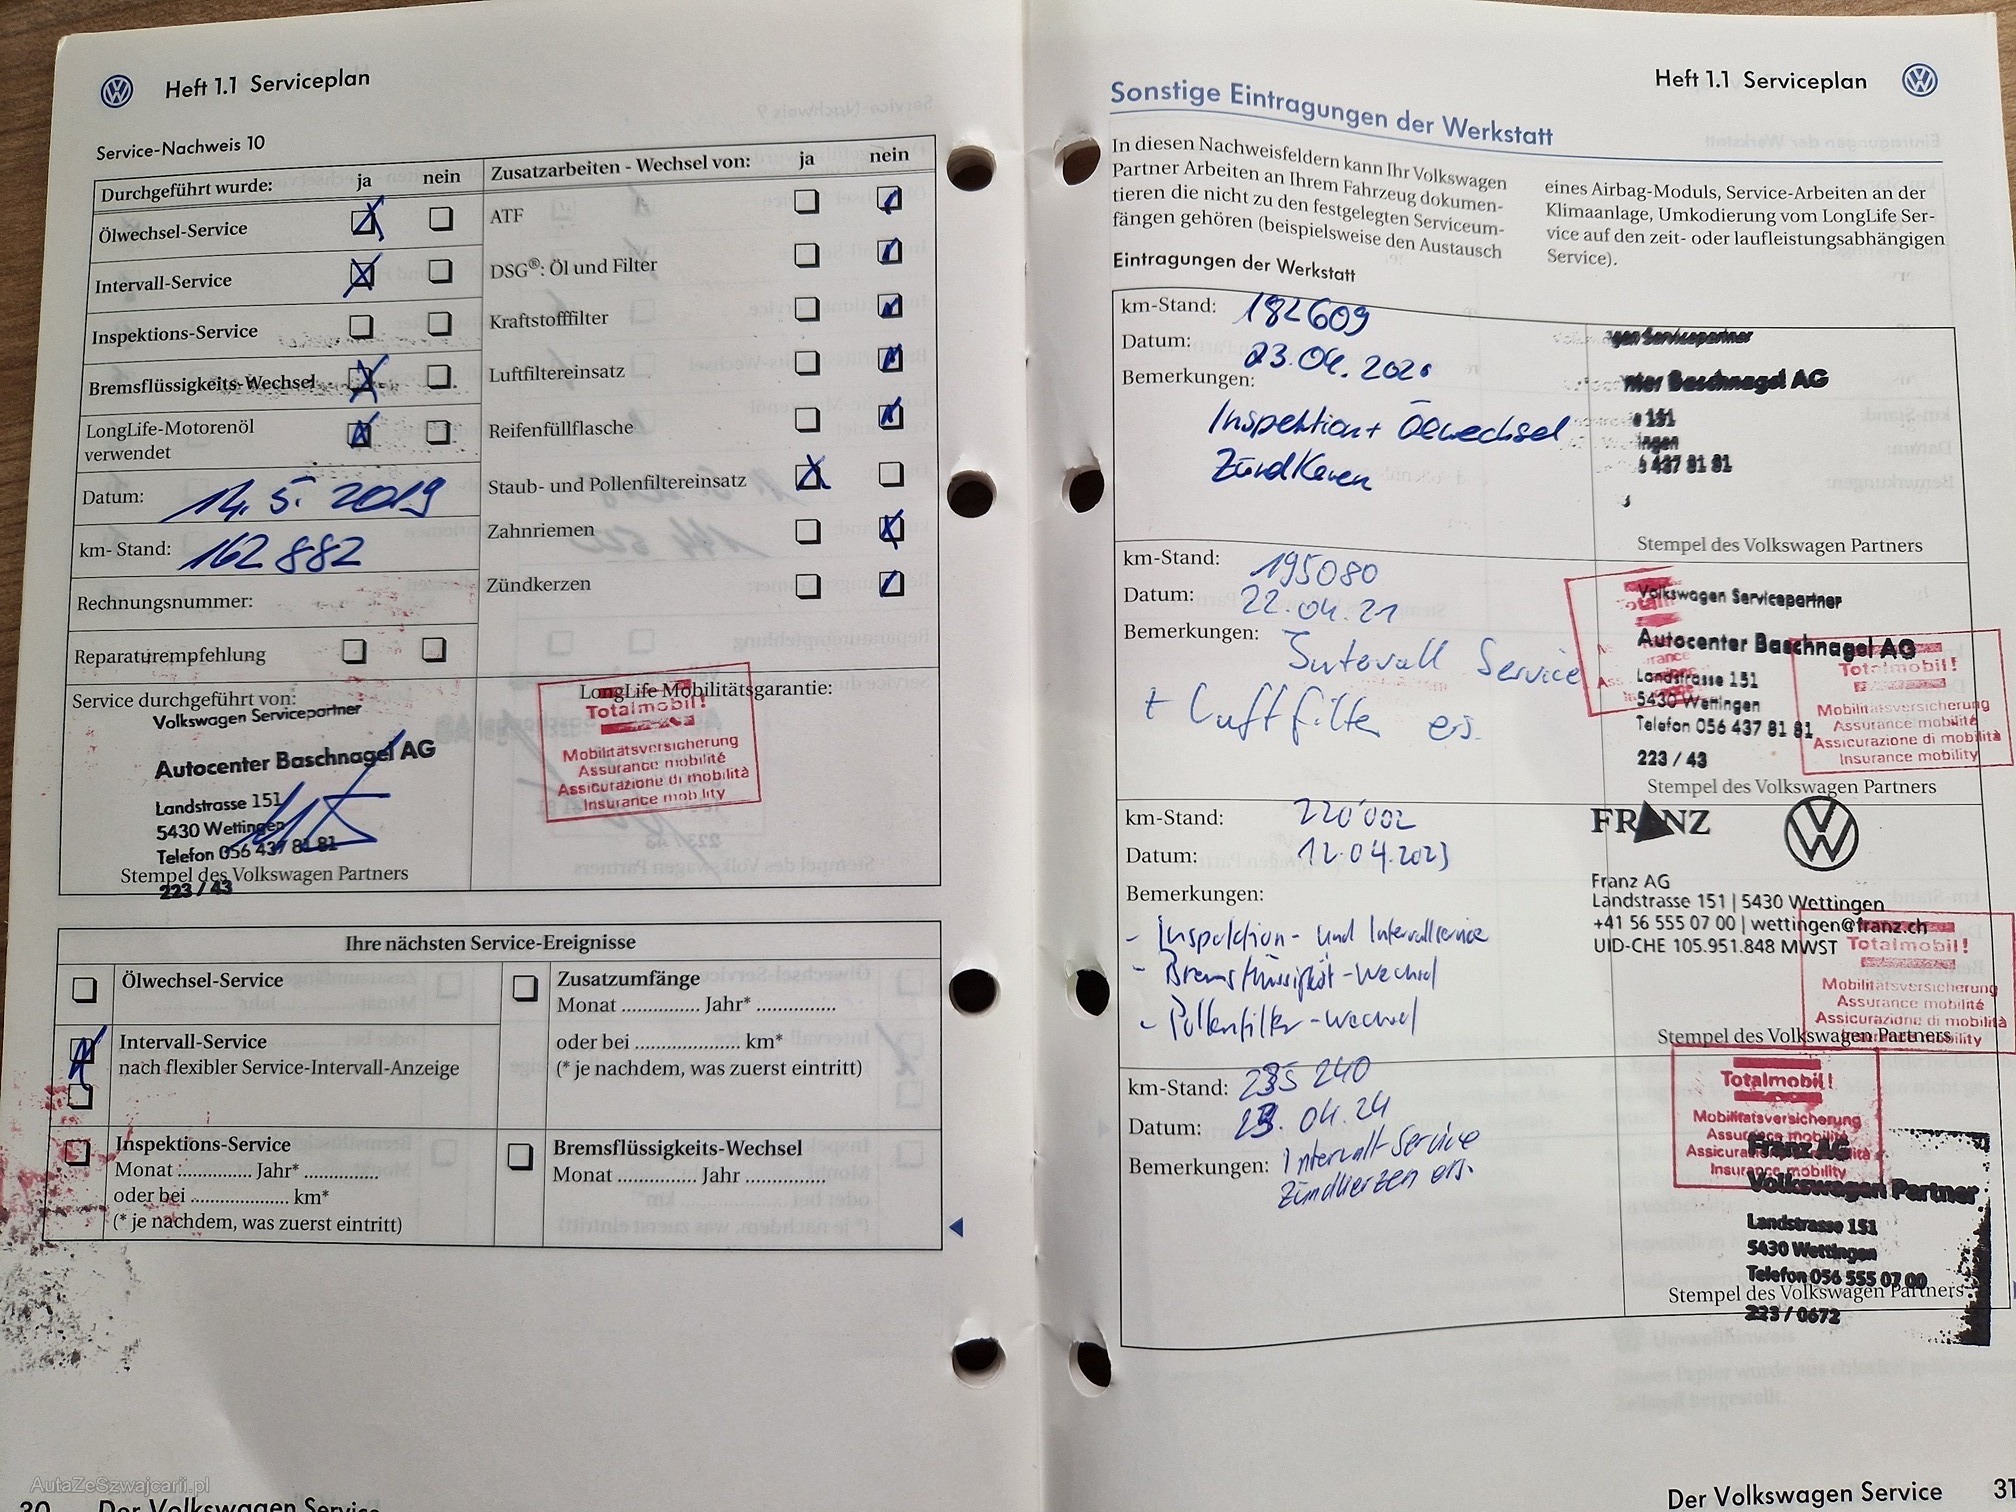 Heft 1.1 Serviceplan
Service-Nachweis 10
Durchgeführt wurde: ja nein
Ölwechsel-Service
Intervall-Service
Inspektions-Service
Bremsflüssigkeits-Wechsel
LongLife-Motorenöl
verwendet
Datum: 14.5.2019
km-Stand: 162 882
Rechnungsnummer:
Reparaturempfehlung
Service durchgeführt von:
Volkswagen Servicepartner
Autocenter Baschnagel AG
Landstrasse 151
5430 Wettingen
Telefon 056 437 81 81
Stempel des Volkswagen Partners
223 / 43
Zusatzarbeiten - Wechsel von: ja nein
ATF
DSG®: Öl und Filter
Kraftstofffilter
Luftfiltereinsatz
Reifenfüllflasche
Staub- und Pollenfiltereinsatz
Zahnriemen
Zündkerzen
LongLife Mobilitätsgarantie:
Totalmobil!
Mobilitätsversicherung
Assurance mobilité
Assicurazione di mobilità
Insurance mobility
Ihre nächsten Service-Ereignisse
Ölwechsel-Service
Intervall-Service
nach flexibler Service-Intervall-Anzeige
Inspektions-Service
Monat ............... Jahr* ...............
oder bei .................... km*
(* je nachdem, was zuerst eintritt)
Zusatzumfänge
Monat ............... Jahr* ...............
oder bei .................... km*
(* je nachdem, was zuerst eintritt)
Bremsflüssigkeits-Wechsel
Monat ............... Jahr ...............
AutaZeSzwajcarii.pl
30 Der Volkswagen Service
Heft 1.1 Serviceplan
Sonstige Eintragungen der Werkstatt
In diesen Nachweisfeldern kann Ihr Volkswagen
Partner Arbeiten an Ihrem Fahrzeug dokumen-
tieren die nicht zu den festgelegten Serviceum-
fängen gehören (beispielsweise den Austausch
eines Airbag-Moduls, Service-Arbeiten an der
Klimaanlage, Umkodierung vom LongLife Ser-
vice auf den zeit- oder laufleistungsabhängigen
Service).
Eintragungen der Werkstatt
km-Stand: 182609
Datum: 23.04.2020
Bemerkungen:
Inspektion + Ölwechsel
Zündkerzen
gen Servicepartner
nter Baschnagel AG
151
ingen
6 437 81 81
3
Stempel des Volkswagen Partners
km-Stand: 195080
Datum: 22.04.21
Bemerkungen:
Intervall Service
+ Luftfilter ers.
Volkswagen Servicepartner
Autocenter Baschnagel AG
Landstrasse 151
5430 Wettingen
Telefon 056 437 81 81
223 / 43
Totalmobil!
Mobilitätsversicherung
Assurance mobilité
Assicurazione di mobilità
Insurance mobility
Stempel des Volkswagen Partners
km-Stand: 220'002
Datum: 12.04.2023
Bemerkungen:
- Inspektion- und Intervallservice
- Bremsflüssigkeit-Wechsel
- Pollenfilter-Wechsel
FRANZ
Franz AG
Landstrasse 151 | 5430 Wettingen
+41 56 555 07 00 | wettingen@franz.ch
UID-CHE 105.951.848 MWST
Totalmobil!
Mobilitätsversicherung
Assurance mobilité
Assicurazione di mobilità
Insurance mobility
Stempel des Volkswagen Partners
km-Stand: 235 240
Datum: 23.04.24
Bemerkungen: Intervall-Service
Zündkerzen ers.
Totalmobil!
Mobilitätsversicherung
Assurance mobilité
Assicurazione di mobilità
Insurance mobility
Franz AG
Volkswagen Partner
Landstrasse 151
5430 Wettingen
Telefon 056 555 07 00
Stempel des Volkswagen Partners
223 / 0672
Der Volkswagen Service 31